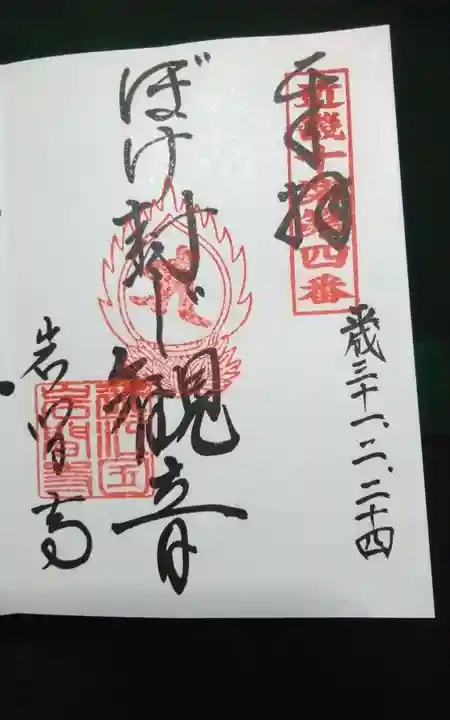 平成三十一、二、二十四
近畿十楽第四番
奉拝
ぼけ封じ観音
岩間寺